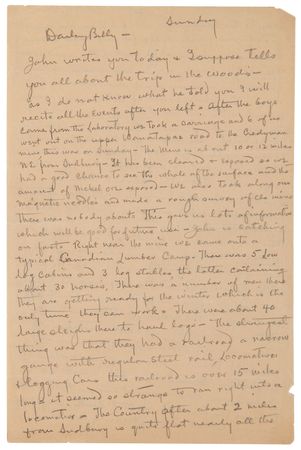 Sunday
Darling Billy —
John writes you today & I suppose tells
you all about the trip in the woods —
as I do not know what he told you I will
recite all the Events after you left — After the boys
came from the Laboratory we took a carriage and 6 of us
went out on the upper road to the
mine this was on Sunday — The mine is about 10 or 12 miles
N.E. from Sudbury — It has been cleared & exposed so we
had a good chance to see the whole of the surface and the
amount of Nickel ore exposed — We also took along our
magnetic needles and made a rough survey of the mine
There was nobody about This gave us lots of information
which will be good for future use — John is catching
on fast. Right near the mine we came onto a
typical Canadian Lumber Camp. There was 5 Low
Log Cabins and 3 big stables the latter containing
about 30 horses, There was a number of men there
they are getting ready for the winter which is the
only time they can work — There were about 40
large sleighs there to haul logs — The strangest
thing was that they had a railroad a narrow
gauge with regular steel rail, Locomotives
& logging cars this railroad is over 15 miles
long & it seemed so strange to run right into a
locomotive — The Country after about 2 miles
from Sudbury is quite flat nearly all the